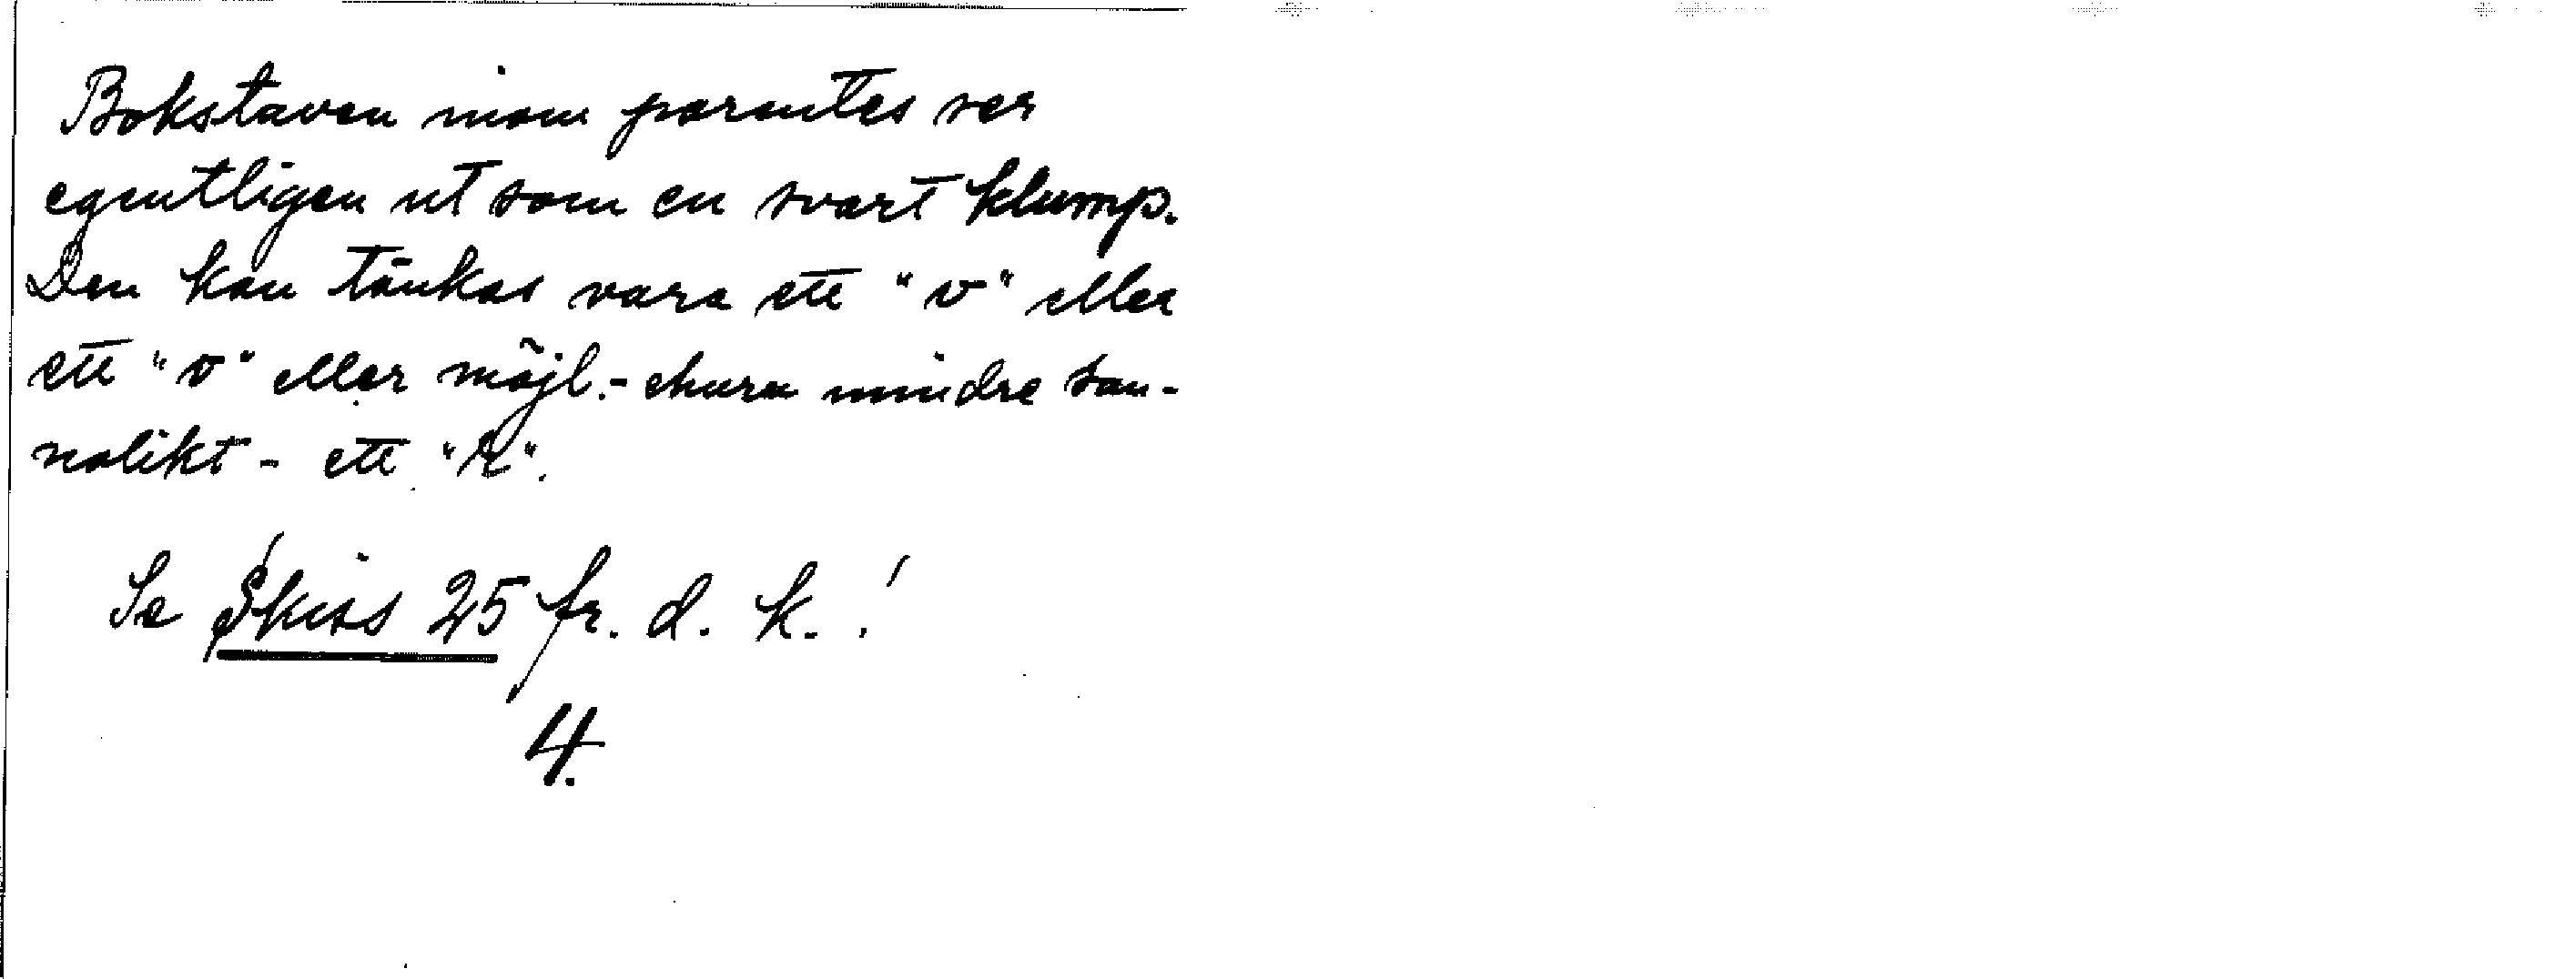 Bokstaven inom parentes ser
egentligen ut som en svart klump.
Den kan tänkas vara ett "v" eller
ett "o" eller möjl.- ehuru mindre san-
nolikt - ett "r".
Se Skiss 25 fr. d. k.!
4.